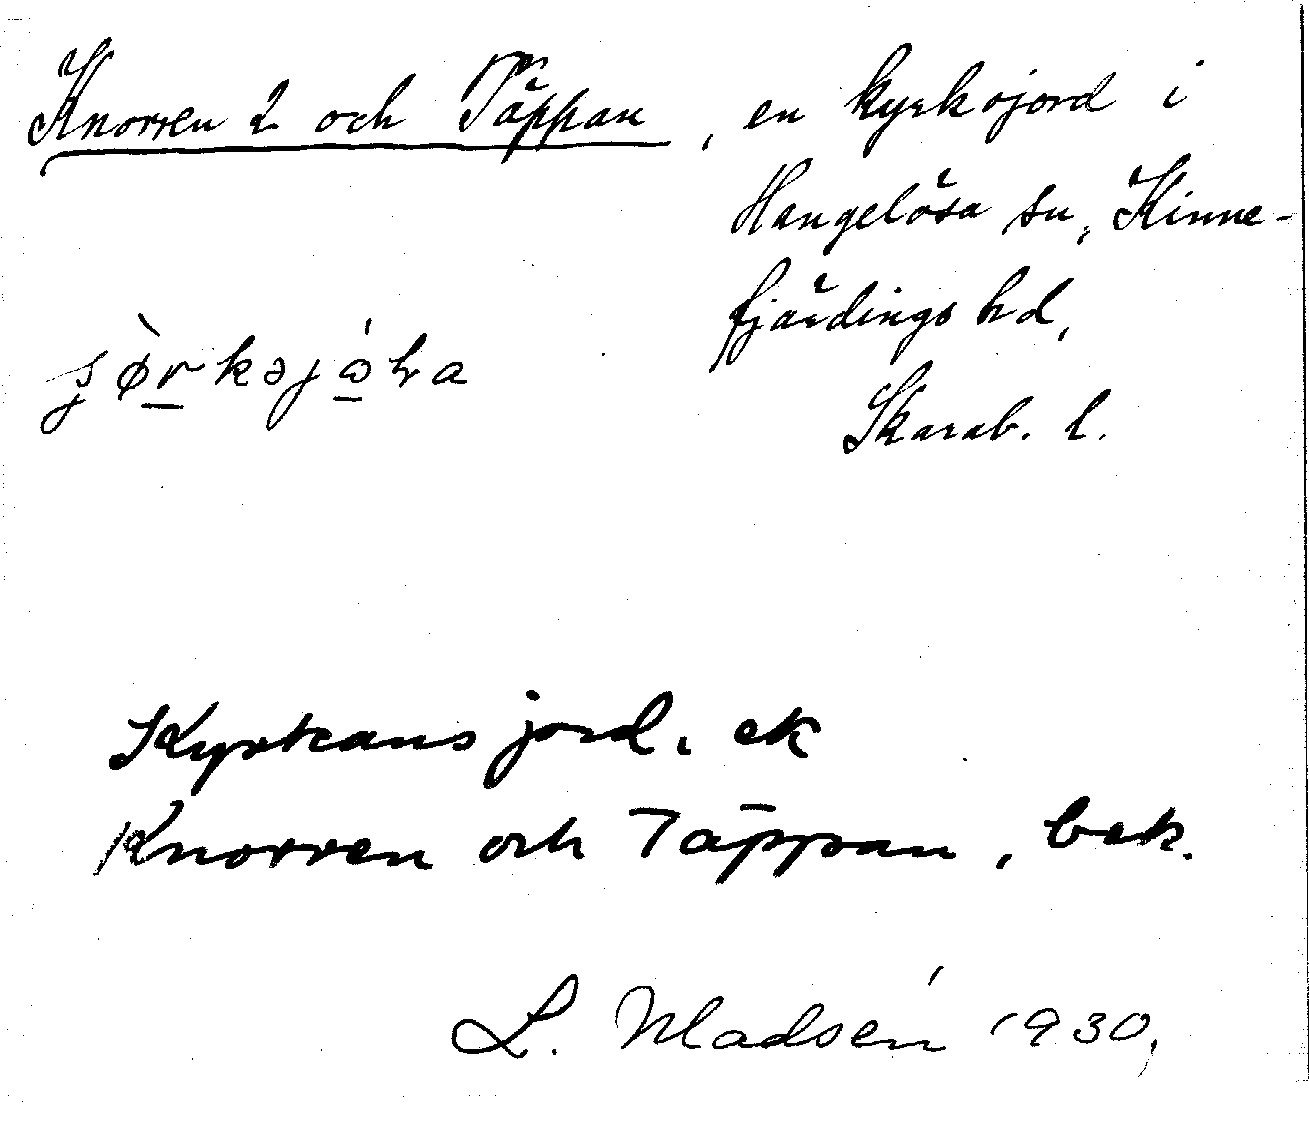 Knorren 2 och Täppan, en kyrkojord i
Hangelösa sn, Kinne-
fjärdings hd,
Skarab. l.
Kyrkans jord. ek
Knorren och Täppan, bek.
L. Madsén 1930,